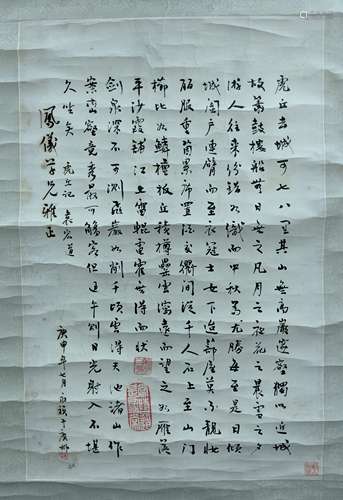 虎丘去城可七八里其山無高巖邃壑獨以近城
故簫鼓樓船無日無之凡月之夜花之晨雪之夕
游人往來紛錯如織而中秋為尤勝每至是日傾
城闔戶連臂而至衣冠士女下迨蔀屋莫不靚妝
麗服重茵累席置酒交衢間從千人石上至山門
櫛比如鱗檀板丘積樽罍雲瀉遠而望之如雁落
平沙霞鋪江上雷輥電霍無得而狀
劍泉深不可測飛巖如削千頃雲得天池諸山作
案巒壑競秀最可觴客但過午則日光射入不堪
久坐矣 虎丘記 袁宏道
鳳儀學兄雅正
庚申年七月 于廣州